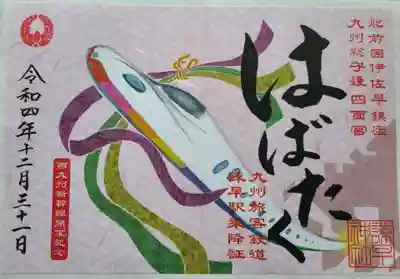 肥前国伊佐早鎮座
九州総守護四面宮
はばたく
九州旅客鉄道
諫早駅乗降証
西九州新幹線開業記念
令和四年十二月三十一日
諫早神社